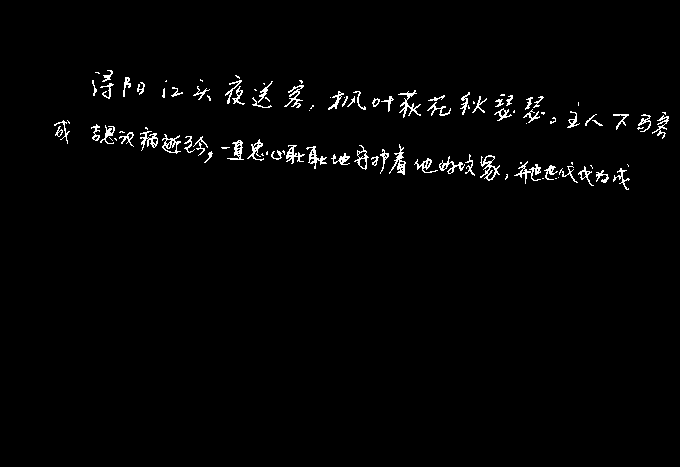 浔阳江头夜送客，枫叶荻花秋瑟瑟。主人下马客
成吉思汗病逝至今，一直忠心耿耿地守护着他的坟冢，并世世代代为成